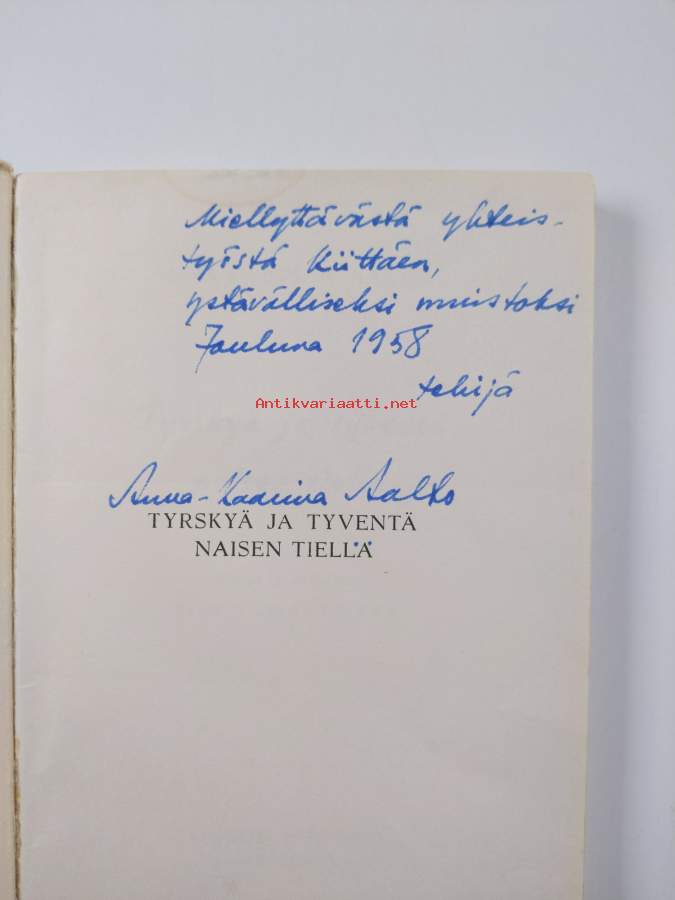 Miellyttävästä yhteis-
työstä kiittäen,
ystävälliseksi muistoksi
Jouluna 1958
tekijä
Antikvariaatti.net
Anna-Kaarina Aalto
TYRSKYÄ JA TYVENTÄ
NAISEN TIELLÄ